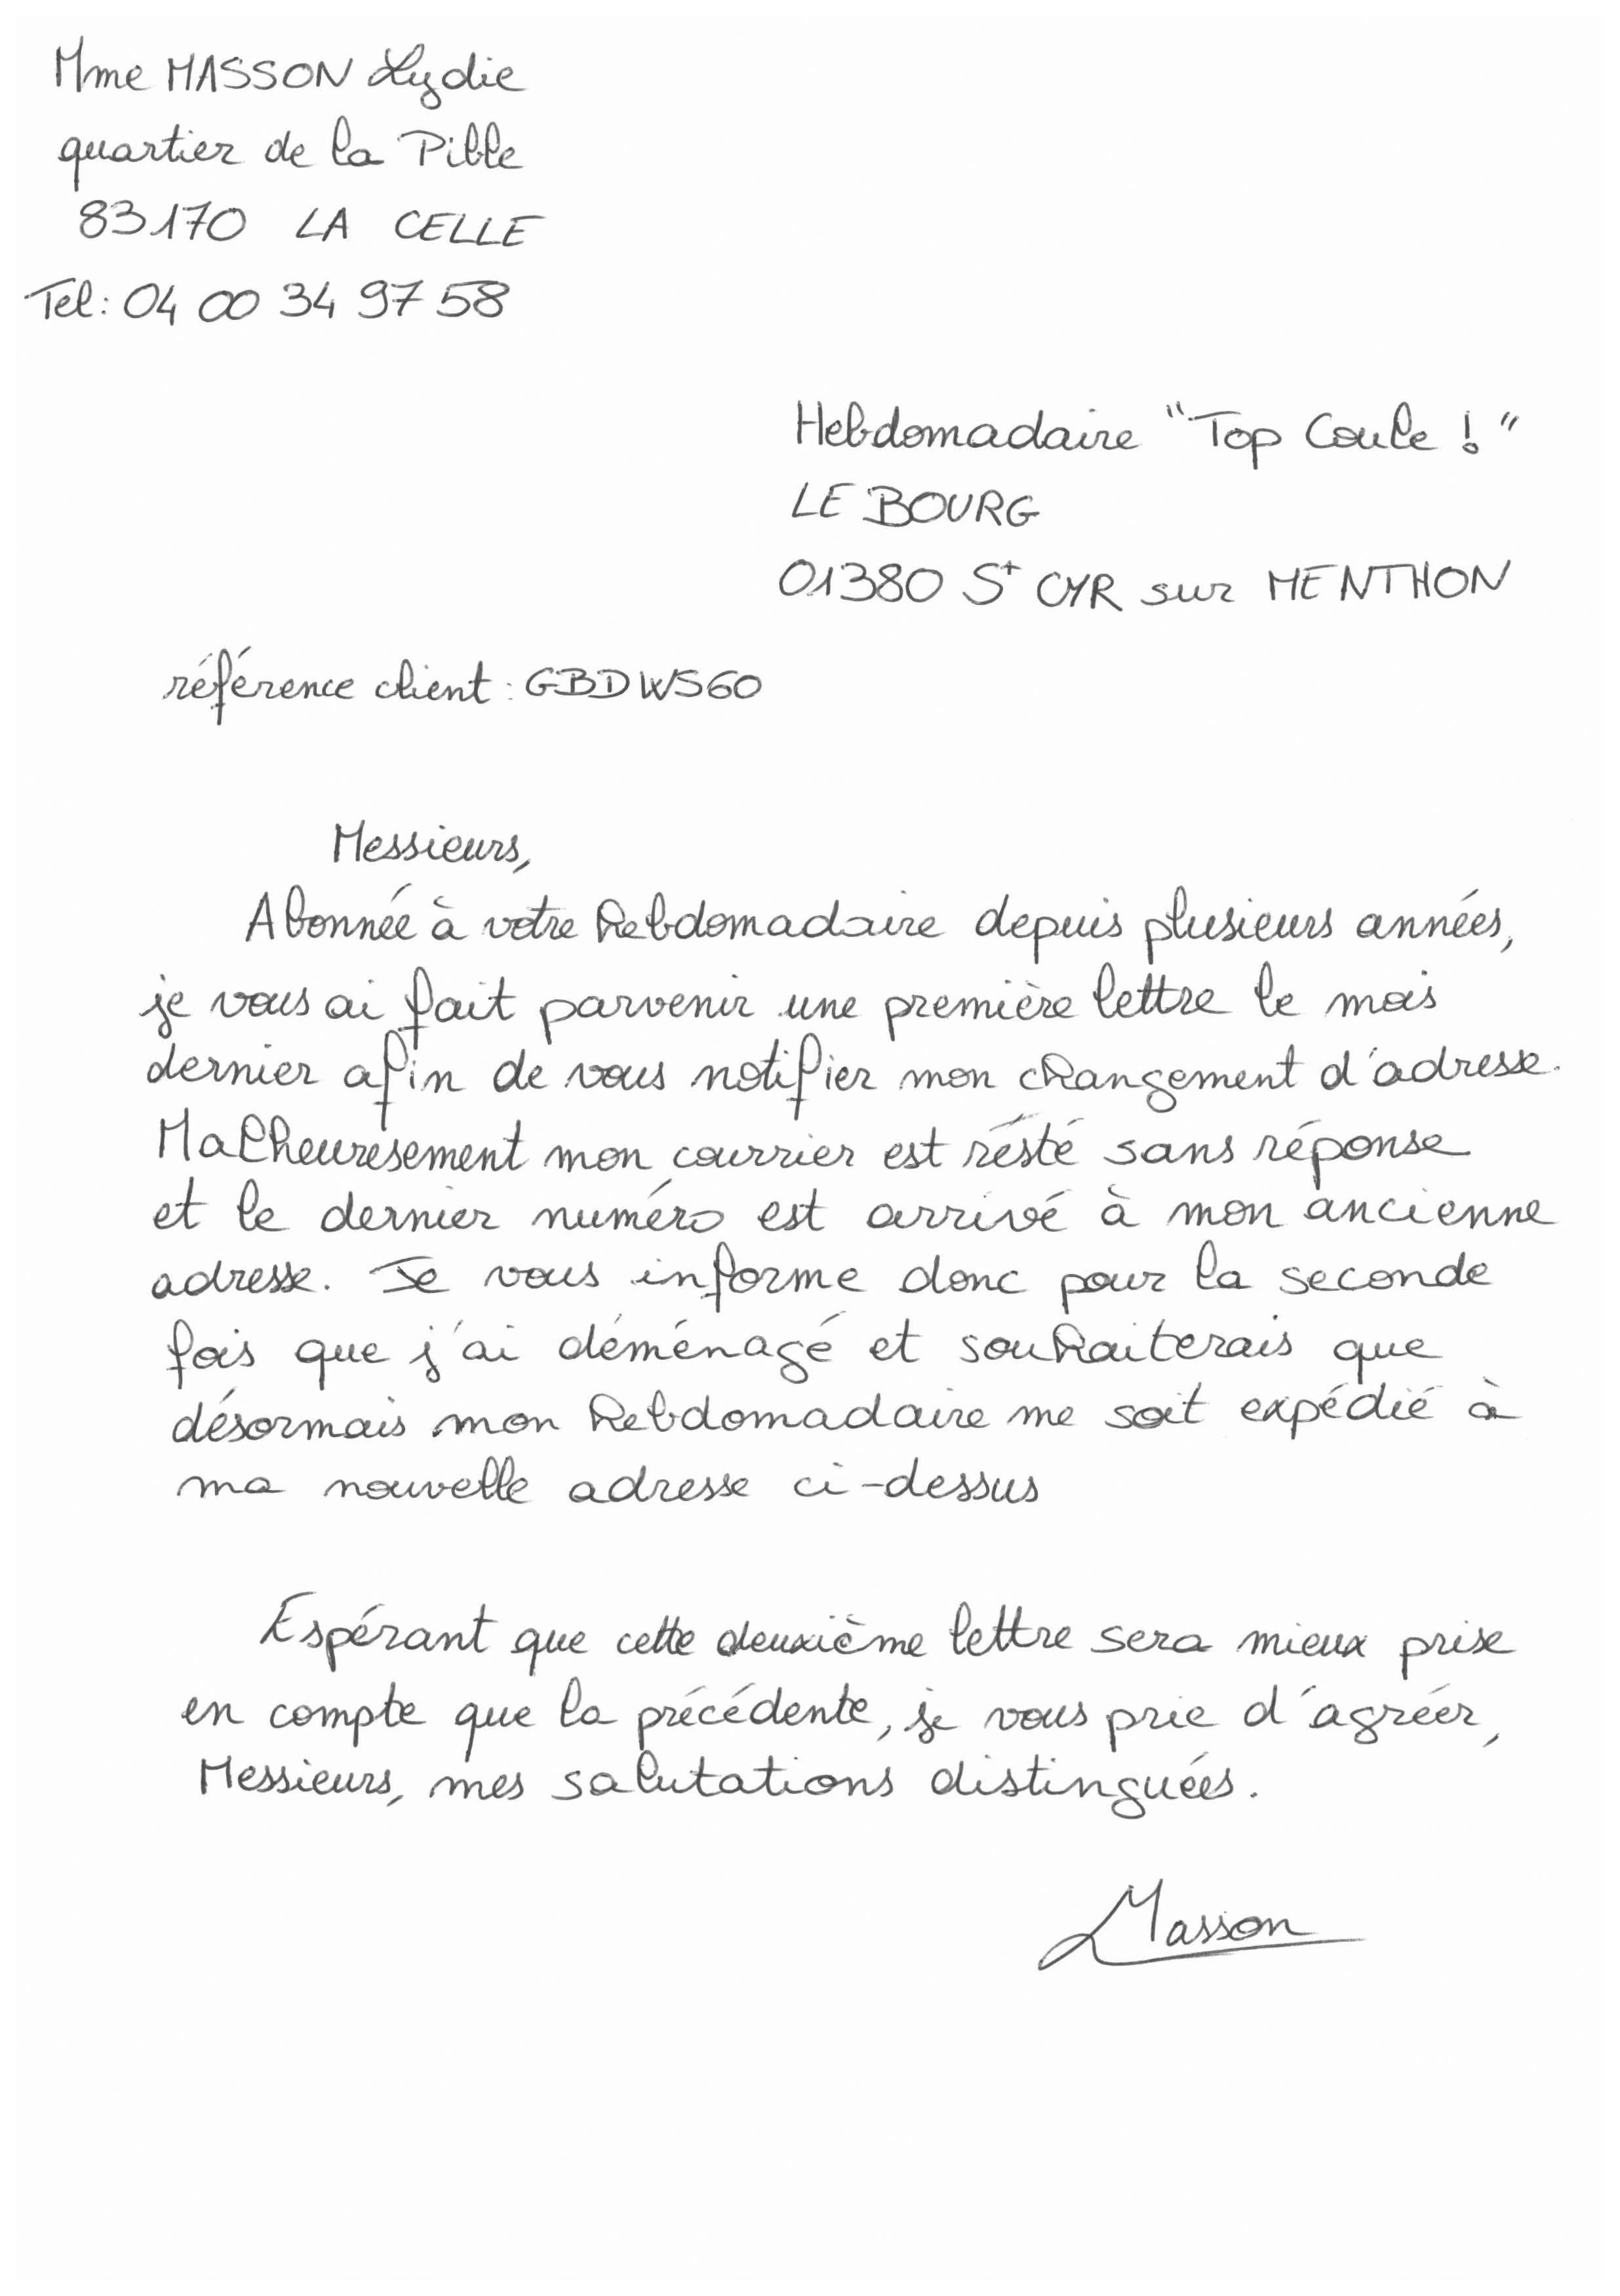 Mme MASSON Lydie
quartier de la Pible
83170 LA CELLE
Tel: 04 00 34 97 58
Hebdomadaire "Top Coule !"
LE BOURG
01380 St CYR sur MENTHON
référence client : GBDWS60
Messieurs,
Abonnée à votre hebdomadaire depuis plusieurs années,
je vous ai fait parvenir une première lettre le mois
dernier afin de vous notifier mon changement d'adresse.
Malheuresement mon courrier est résté sans réponse
et le dernier numéro est arrivé à mon ancienne
adresse. Je vous informe donc pour la seconde
fois que j'ai déménagé et souhaiterais que
désormais mon hebdomadaire me soit expédié à
ma nouvelle adresse ci-dessus
Espérant que cette deuxième lettre sera mieux prise
en compte que la précédente, je vous prie d'agréer,
Messieurs, mes salutations distinguées.
Masson